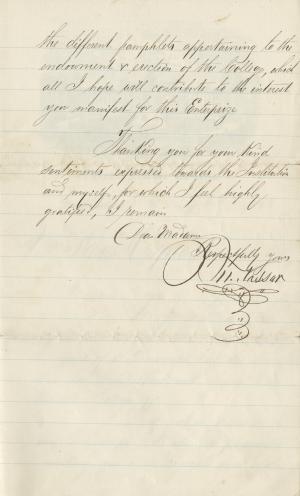 the different pamphlets appertaining to the
endowment & erection of the College, which
all I hope will contribute to the interest
you manifest for this Enterprize
Thanking you for your kind
sentiments expresses towards the Institution
and myself, for which I feel highly
gratified, I remain
Dear Madam
Respectfully yours
M. Vassar